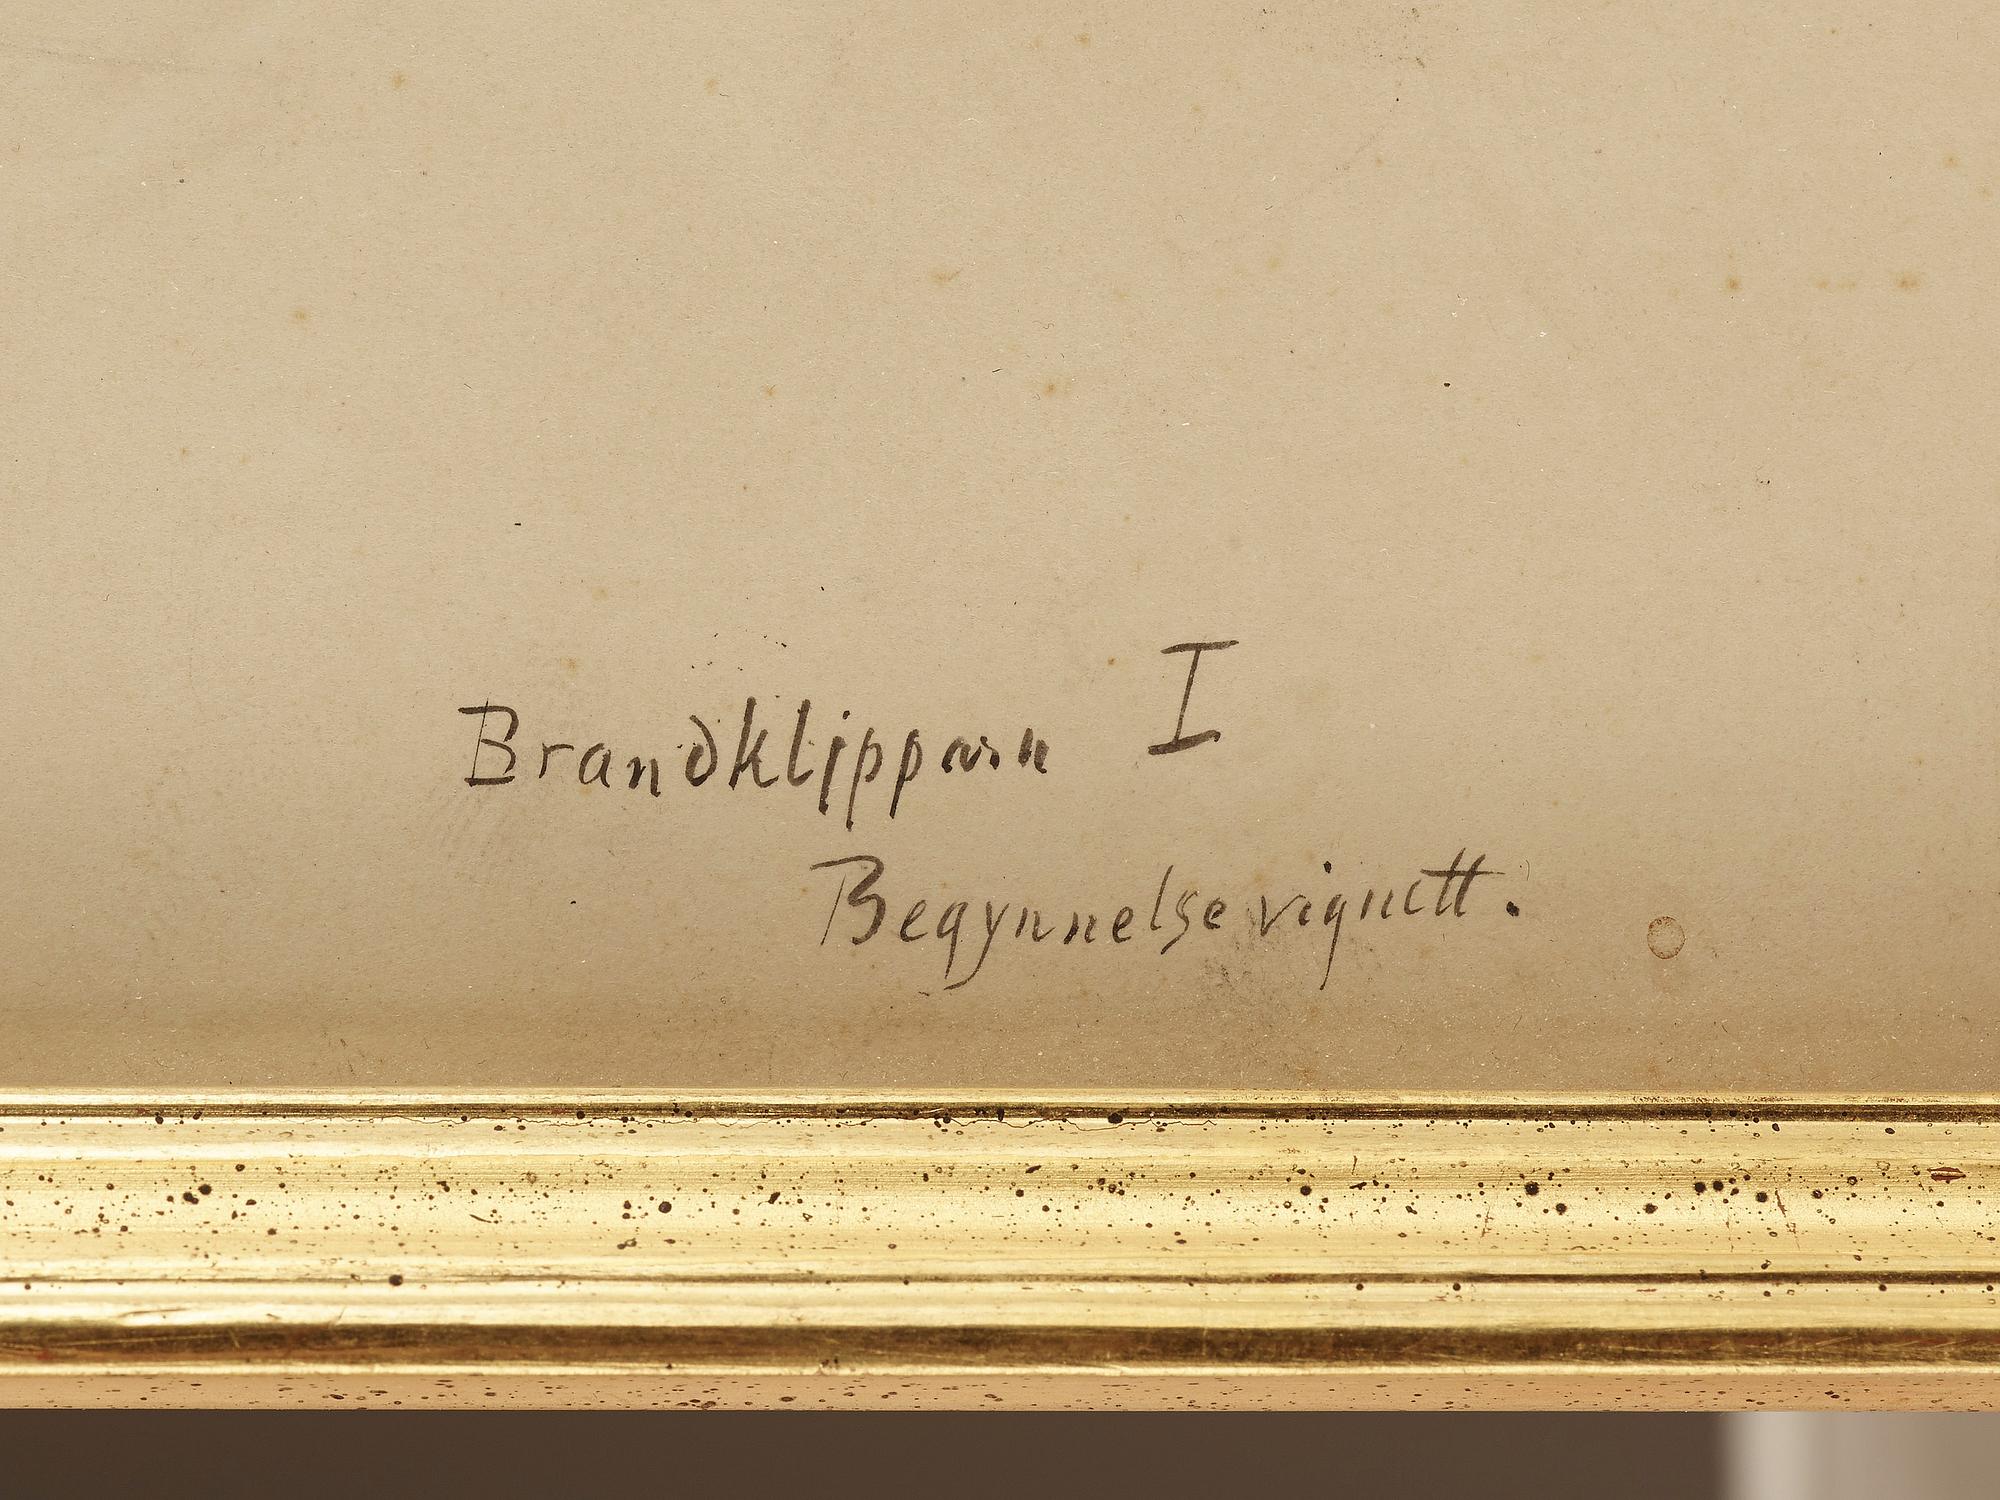 Brandklipparn I
Begynnelsevignett.